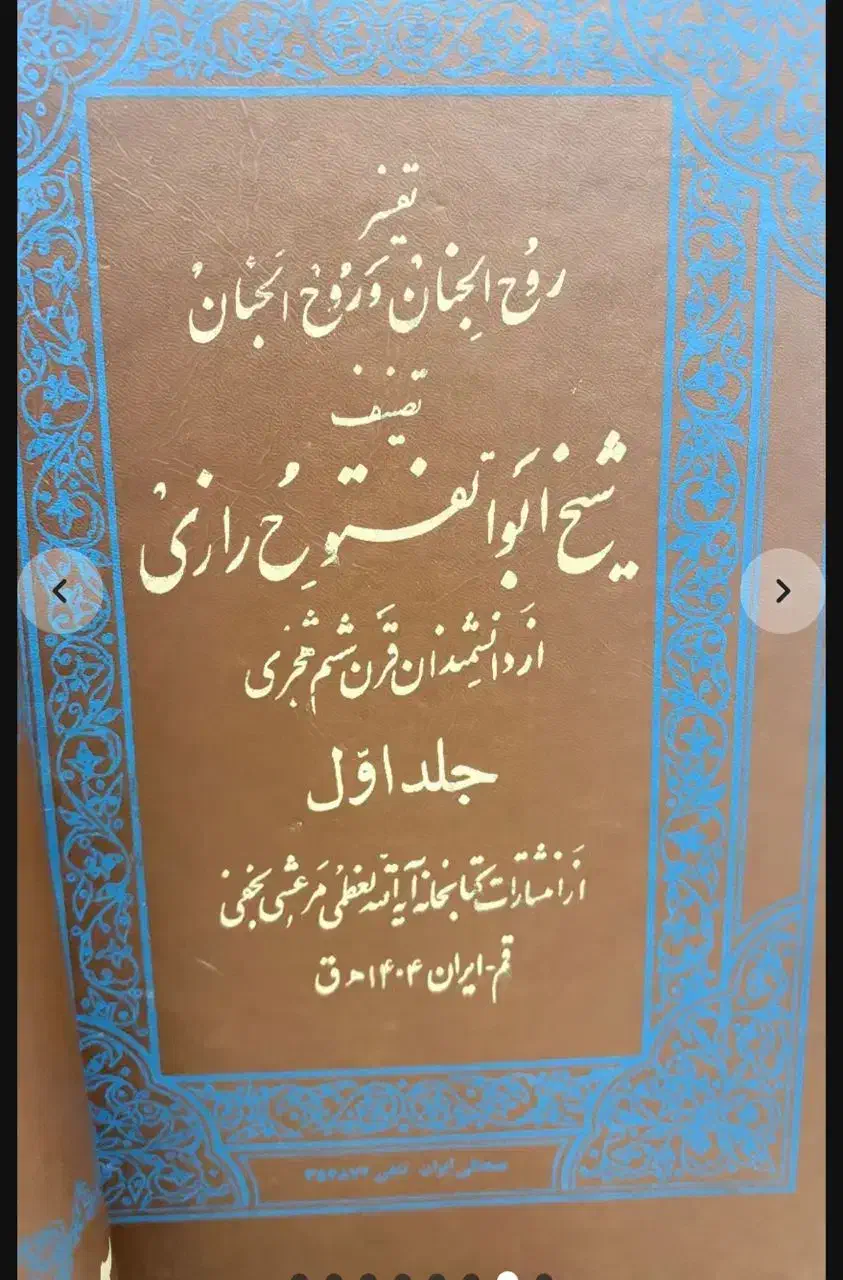 تفسیر
رَوُحُ الجِنانُ وَرُوُحُ الجَنانُ
تصنیف
شیخ ابَوالفتوُحِ رازیُ
از دانشمندان قَرن ششم هجری
جلد اوّل
از انتشارات کتابخانه آیة الله العظمی مَرعَشی نجفی
قم-ایران ۱۴۰۴ ه ق
صحافی ایران تلفن